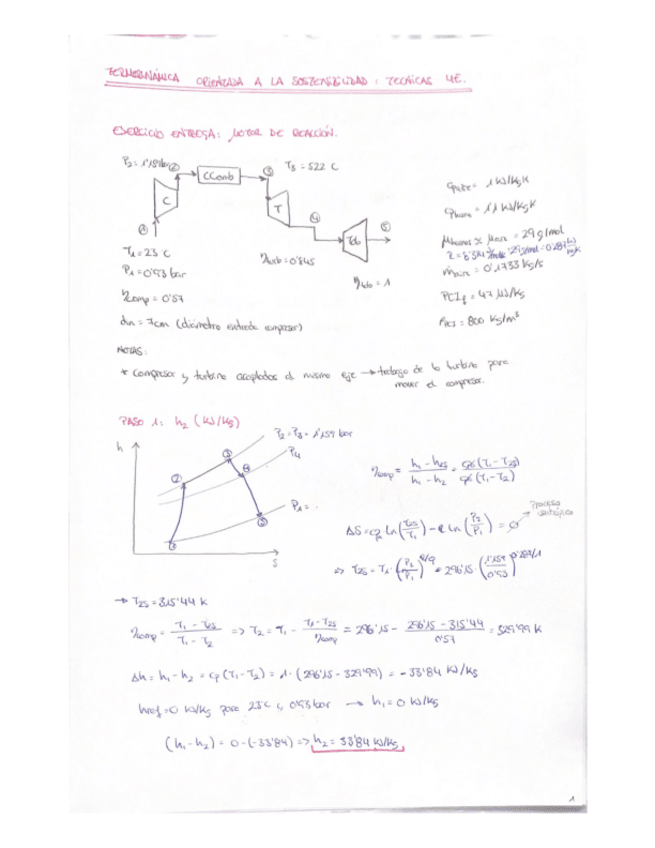 TERMODINÁMICA ORIENTADA A LA SOSTENIBILIDAD: TECNICAS 4E.
EJERCICIO ENTREGA: MOTOR DE REACCIÓN.
P2 = 1'159 bar
②
CComb
③
T3 = 522 C
C
T
④
⑤
Tob
①
T1 = 23 C
P1 = 0'93 bar
ηturb = 0'845
ηtob = 1
ηcomp = 0'57
din = 7cm (diámetro entrada compresor)
cpaire = 1 kJ/kgK
cphumos = 1'1 kJ/kgK
μhumos ≈ μaire = 29 g/mol
ṁaire = 0'1733 kg/s
PCIf = 47 MJ/kg
= 800 kg/m³
NOTAS:
* Compresor y turbina acoplados al mismo eje → trabajo de la turbina para
mover el compresor.
PASO 1: h2 (kJ/kg)
h
P2 = P3 = 1'159 bar
P4
P1 =
①
②
③
④
⑤
S
ηcomp = (h1 - h2s)/(h1 - h2) = cp(T1 - T2s)/cp(T1 - T2)
ΔS = cp Ln(T2s/T1) - R Ln(P2/P1) = 0
Proceso isentrópico
⇒ T2s = T1 · (P2/P1)^(R/cp) = 296'15 · (1'159/0'93)^(0'287/1)
→ T2s = 315'44 K
ηcomp = (T1 - T2s)/(T1 - T2) => T2 = T1 - (T1 - T2s)/ηcomp = 296'15 - (296'15 - 315'44)/0'57 = 329'99 K
Δh = h1 - h2 = cp(T1 - T2) = 1 · (296'15 - 329'99) = -33'84 kJ/kg
href = 0 kJ/kg para 23°C y 0'93 bar → h1 = 0 kJ/kg
(h1 - h2) = 0 - (-33'84) => h2 = 33'84 kJ/kg
1